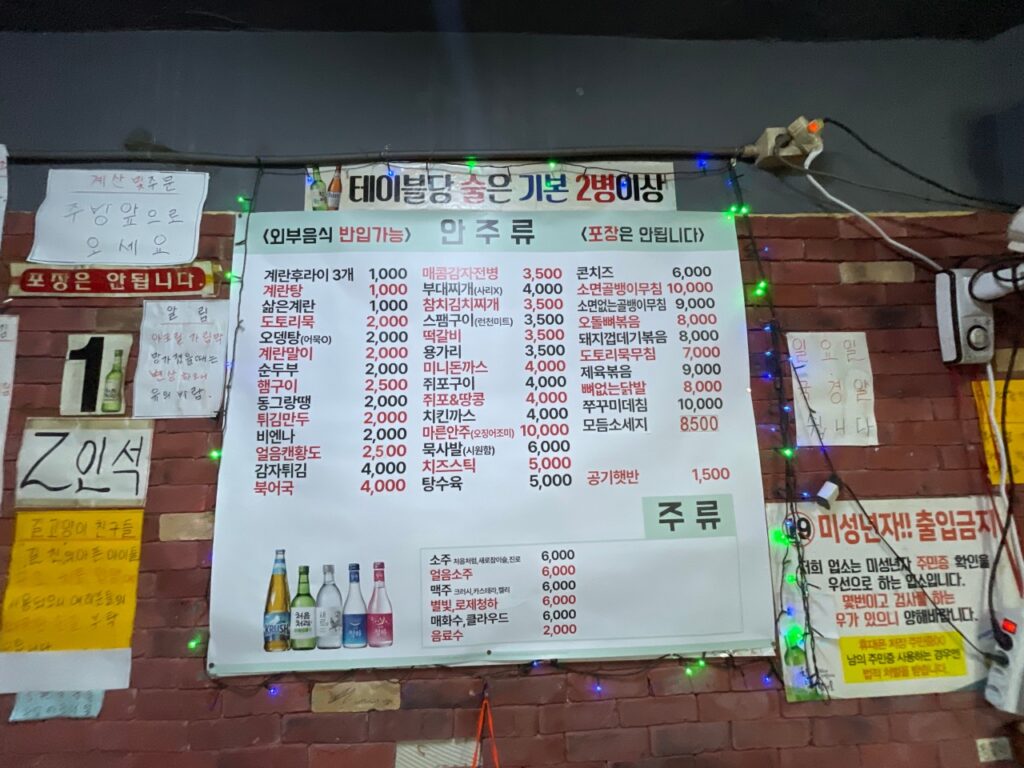 테이블당 술은 기본 2병이상
<외부음식 반입가능> 안주류 <포장은 안됩니다>
계란후라이 3개 1,000
계란탕 1,000
삶은계란 1,000
도토리묵 2,000
오뎅탕(어묵O) 2,000
계란말이 2,000
순두부 2,000
햄구이 2,500
동그랑땡 2,000
튀김만두 2,000
비엔나 2,000
얼음캔황도 2,500
감자튀김 4,000
북어국 4,000
매콤감자전병 3,500
부대찌개(사리X) 4,000
참치김치찌개 3,500
스팸구이(런천미트) 3,500
떡갈비 3,500
용가리 3,500
미니돈까스 4,000
쥐포구이 4,000
쥐포&땅콩 4,000
치킨까스 4,000
마른안주(오징어조미) 10,000
묵사발(시원함) 6,000
치즈스틱 5,000
탕수육 5,000
콘치즈 6,000
소면골뱅이무침 10,000
소면없는골뱅이무침 9,000
오돌뼈볶음 8,000
돼지껍데기볶음 8,000
도토리묵무침 7,000
제육볶음 9,000
뼈없는닭발 8,000
쭈꾸미데침 10,000
모듬소세지 8500
공기햇반 1,500
주류
소주 처음처럼,새로,참이슬,진로 6,000
얼음소주 6,000
맥주 크러시,카스,테라,켈리 6,000
별빛,로제청하 6,000
매화수,클라우드 6,000
음료수 2,000
KRUSH
처음처럼
새로
청하
계산 및 주문
주방앞으로
오세요
포장은 안됩니다
알림
망가졌을때는
변상하셔
유의바람.
1
2인석
길고양이 친구들
일요일
19 미성년자!! 출입금지
저희 업소는 미성년자 주민증 확인을
우선으로 하는 업소입니다.
몇번이고 검사를 하는
우가 있으니 양해바랍니다.
휴대폰 저장 주민증(X)
남의 주민증 사용하는 경우엔
법적 처벌을 받습니다.